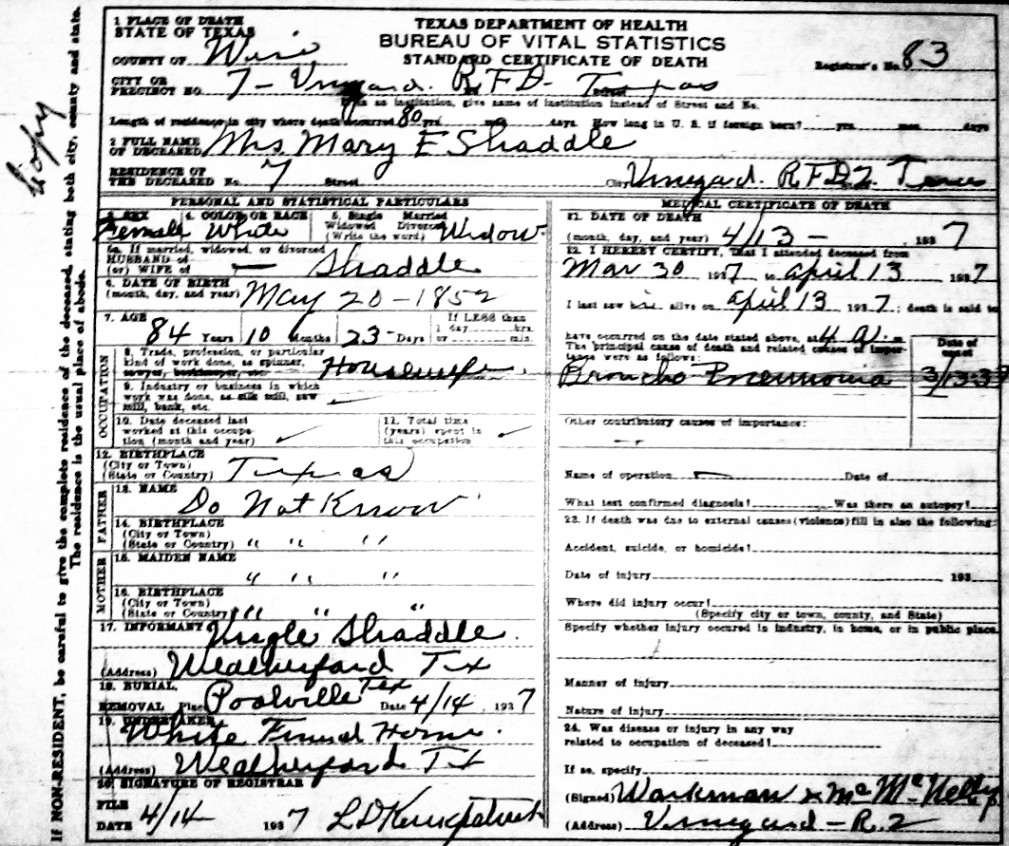 1 PLACE OF DEATH
STATE OF TEXAS
TEXAS DEPARTMENT OF HEALTH
BUREAU OF VITAL STATISTICS
STANDARD CERTIFICATE OF DEATH
COUNTY OF Wise
Registrar's No. 83
CITY OR
PRECINCT NO. 7 - Vineyard. R.F.D. Texas
If in an institution, give name of institution instead of Street and No.
Length of residence in city where death occurred 80 yrs. mos. days. How long in U. S. if foreign born? yrs. mos. days
2 FULL NAME
OF DECEASED Mrs. Mary E Shaddle
RESIDENCE OF
THE DECEASED No. 7 Street City Vineyard. R.F.D.2. Texas
PERSONAL AND STATISTICAL PARTICULARS
3. SEX 4. COLOR OR RACE 5. Single Married
Widowed Divorced
(Write the word)
Female White Widow
5a. If married, widowed, or divorced
HUSBAND of
(or) WIFE of — Shaddle
6. DATE OF BIRTH
(month, day, and year) May 20-1852
7. AGE If LESS than
1 day, hrs.
or min.
84 Years 10 Months 23 Days
OCCUPATION
8. Trade, profession, or particular
kind of work done, as spinner,
sawyer, bookkeeper, etc. Housewife
9. Industry or business in which
work was done, as silk mill, saw
mill, bank, etc.
10. Date deceased last
worked at this occupa-
tion (month and year)
11. Total time
(years) spent in
this occupation
12. BIRTHPLACE
(City or Town)
(State or Country) Texas
FATHER
13. NAME
Do Not Know
14. BIRTHPLACE
(City or Town)
(State or Country) " " "
MOTHER
15. MAIDEN NAME
" " "
16. BIRTHPLACE
(City or Town)
(State or Country) " " "
17. INFORMANT Shaddle.
(Address) Weatherford Tex
18. BURIAL,
REMOVAL Place Poolville Tex Date 4/14, 1937
19. UNDERTAKER
White Funeral Home.
(Address) Weatherford Tex
20. SIGNATURE OF REGISTRAR
FILE
DATE 4/14 1937 L D
MEDICAL CERTIFICATE OF DEATH
21. DATE OF DEATH
(month, day, and year) 4/13 - , 1937
22. I HEREBY CERTIFY, that I attended deceased from
Mar 30 1937 to April 13 1937
I last saw alive on April 13 1937; death is said to
have occurred on the date stated above, at 4 a. m.
The principal cause of death and related causes of impor-
tance were as follows:
Date of
onset
Broncho Pneumonia 3/13-37
Other contributory causes of importance:
Name of operation Date of
What test confirmed diagnosis? Was there an autopsy?
23. If death was due to external causes (violence) fill in also the following:
Accident, suicide, or homicide?
Date of injury 193
Where did injury occur?
(Specify city or town, county, and State)
Specify whether injury occured in industry, in home, or in public place.
Manner of injury
Nature of injury
24. Was disease or injury in any way
related to occupation of deceased?
If so, specify
(Signed) Workman & Mc
(Address) Vineyard - R.2
Copy
If NON-RESIDENT, be careful to give the complete residence of the deceased, stating both city, county and state.
The residence is the usual place of abode.